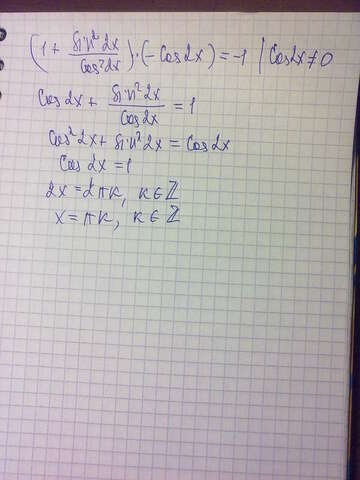 (1 + sin²2x/cos²2x)·(-cos2x) = -1 | cos2x ≠ 0
cos2x + sin²2x/cos2x = 1
cos²2x + sin²2x = cos2x
cos2x = 1
2x = 2πk, k ∈ ℤ
x = πk, k ∈ ℤ